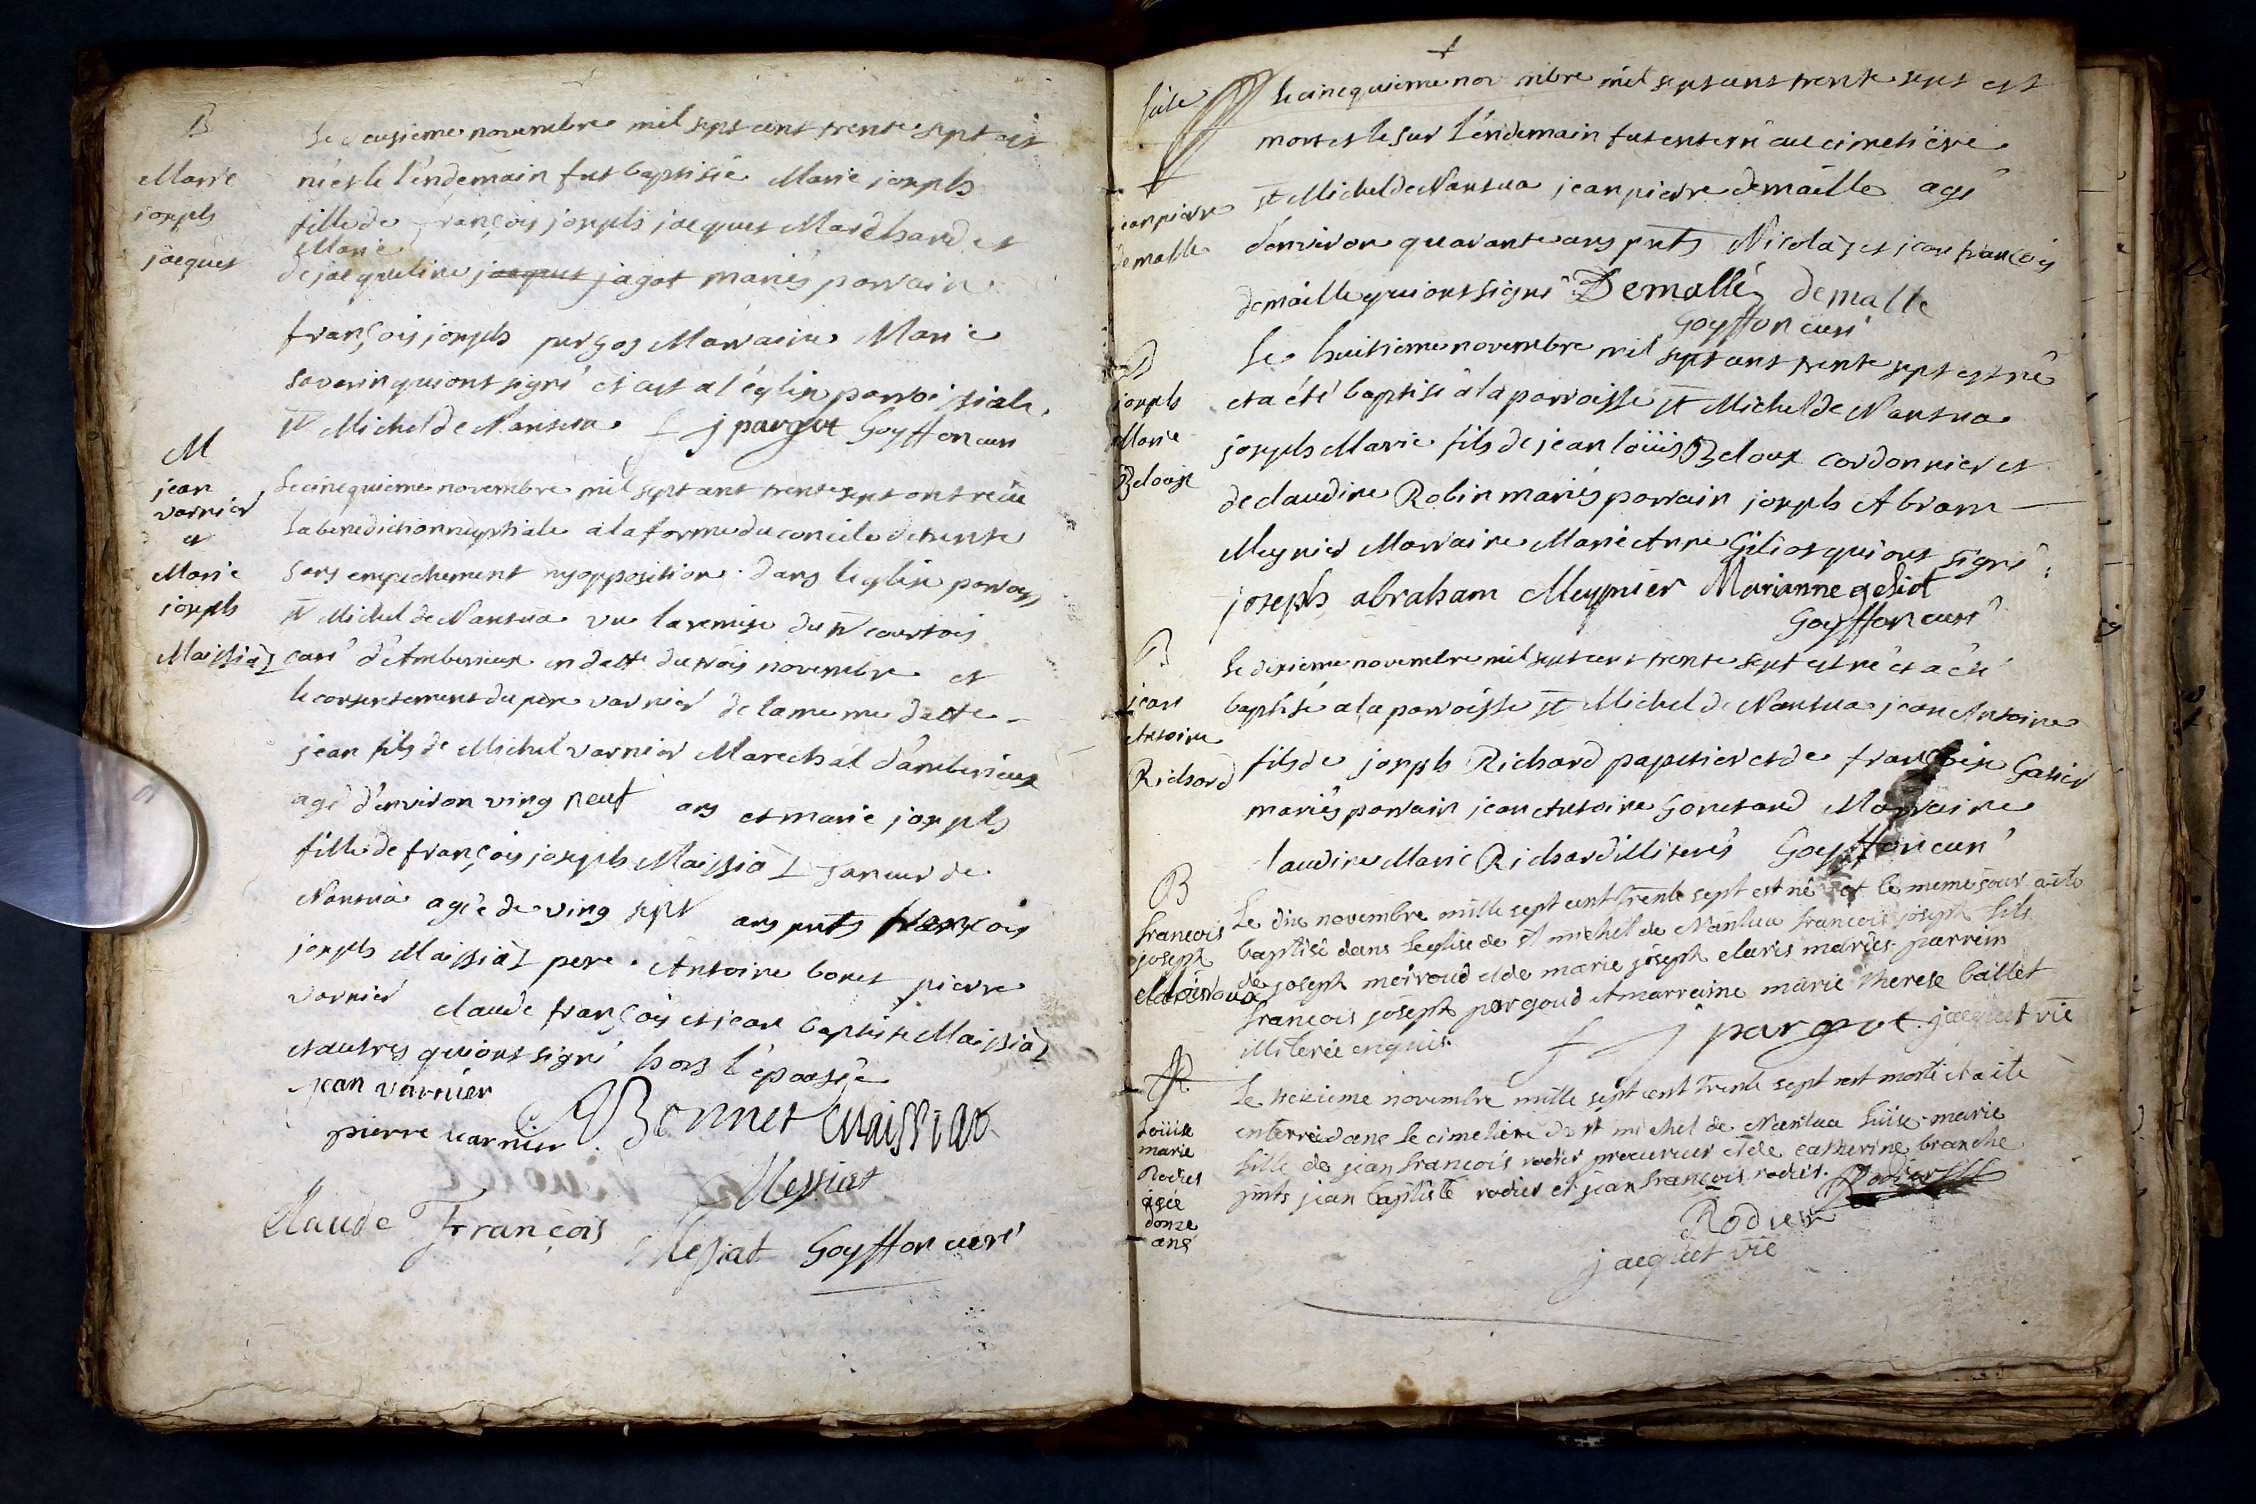 B
Marie
joseph
jacquet
Le deusieme novembre mil sept cent trente sept est
née et le l'endemain fut baptisée Marie joseph
fille de françois joseph jacquet Marchand et
Marie
de jacqueline jagot mariés parrain
françois joseph pargos Marraine Marie
saverin qui ont signé et ast a l'église parroissiale
st Michel de Nantua f j pargot Goyffon curé
M
jean
varnier
et
Marie
joseph
Maissiat
Le cinequieme novembre mil sept cent trente sept ont reçu
la benediction nuptiale a la forme du concile de trente
sans empechement ny opposition dans leglise parrois
st Michel de Nantua vu la remise du sr courtois
curé d'Amberieux en datte du trois novembre et
le consentement du pere varnier de la meme datte
jean fils de Michel varnier Marechal d'amberieux
agé d'environ ving neuf ans et marie joseph
fille de françois joseph Maissiat Taneur de
Nantua agée de ving sept ans pnts françois
joseph Maissiat pere Antoine bonet pierre
varnier claude françois et jean baptiste Maissiat
et autres qui ont signé hors l'epousée
jean varnier
pierre varnier Bonnet Maissiat
Messiat
Claude François Messiat Goyffon curé
jean pierre
demalle
Le cinequieme novembre mil sept cent trente sept est
mort et le sur l'endemain fut enterré au cimetière
st Michel de Nantua jean pierre demaille agé
d'environ quarante ans pnts Nicolas et jean françois
demaille qui ont signé Demallé demalle
Goyffon curé
B
joseph
Marie
Belouse
Le huitieme novembre mil sept cent trente sept est né
et a été baptisé a la parroisse st Michel de Nantua
joseph Marie fils de jean loüis Beloux cordonnier et
de claudine Robin mariés parrain joseph Abram
Meynier Marraine Marie Anne Giliot qui ont signé
joseph abraham Meynier Marianne geliot
Goyffon curé
B
jean
Antoine
Richard
Le dixieme novembre mil sept cent trente sept est né et a été
baptisé a la parroisse st Michel de Nantua jean Antoine
fils de joseph Richard papetier et de françoise Galier
mariés parrain jean Antoine Gonetand Marraine
laudine Marie Richard illiterés Goyffon curé
B
francois
joseph
Meiroud
Le dix novembre mille sept cent trente sept est né et le meme jour a été
baptisé dans leglise de st michel de Nantua francois joseph fils
de joseph meiroud et de marie joseph claris mariés parrein
francois joseph pargoud et marreine marie therese ballet
illiterée enquis f j pargot jacquet vic
Loüise
marie
Rodier
agée
donze
ans
Le treizieme novembre mille sept cent trente sept est morte et a été
enterrée dans le cimetière de st michel de Nantua luise marie
fille de jean francois rodier procureur et de catherine branche
pnts jean baptiste rodier et jean francois rodier.
Rodier
jacquet vic